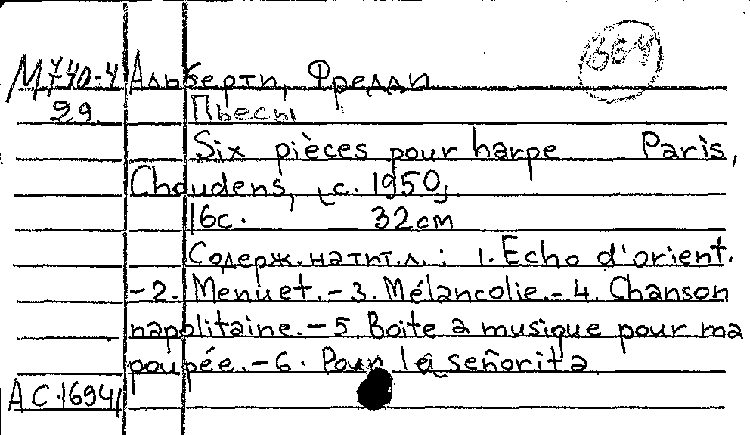 М740-4 Альберти, Фредди
29 Пьесы
Six pièces pour harpe Paris,
Choudens, [c. 1950]
16с. 32см
Содерж. на тит. л.: 1. Echo d'orient.
- 2. Menuet. - 3. Mélancolie. - 4. Chanson
napolitaine. - 5 Boite a musique pour ma
poupée. - 6. Pour la señorita
АС.1694